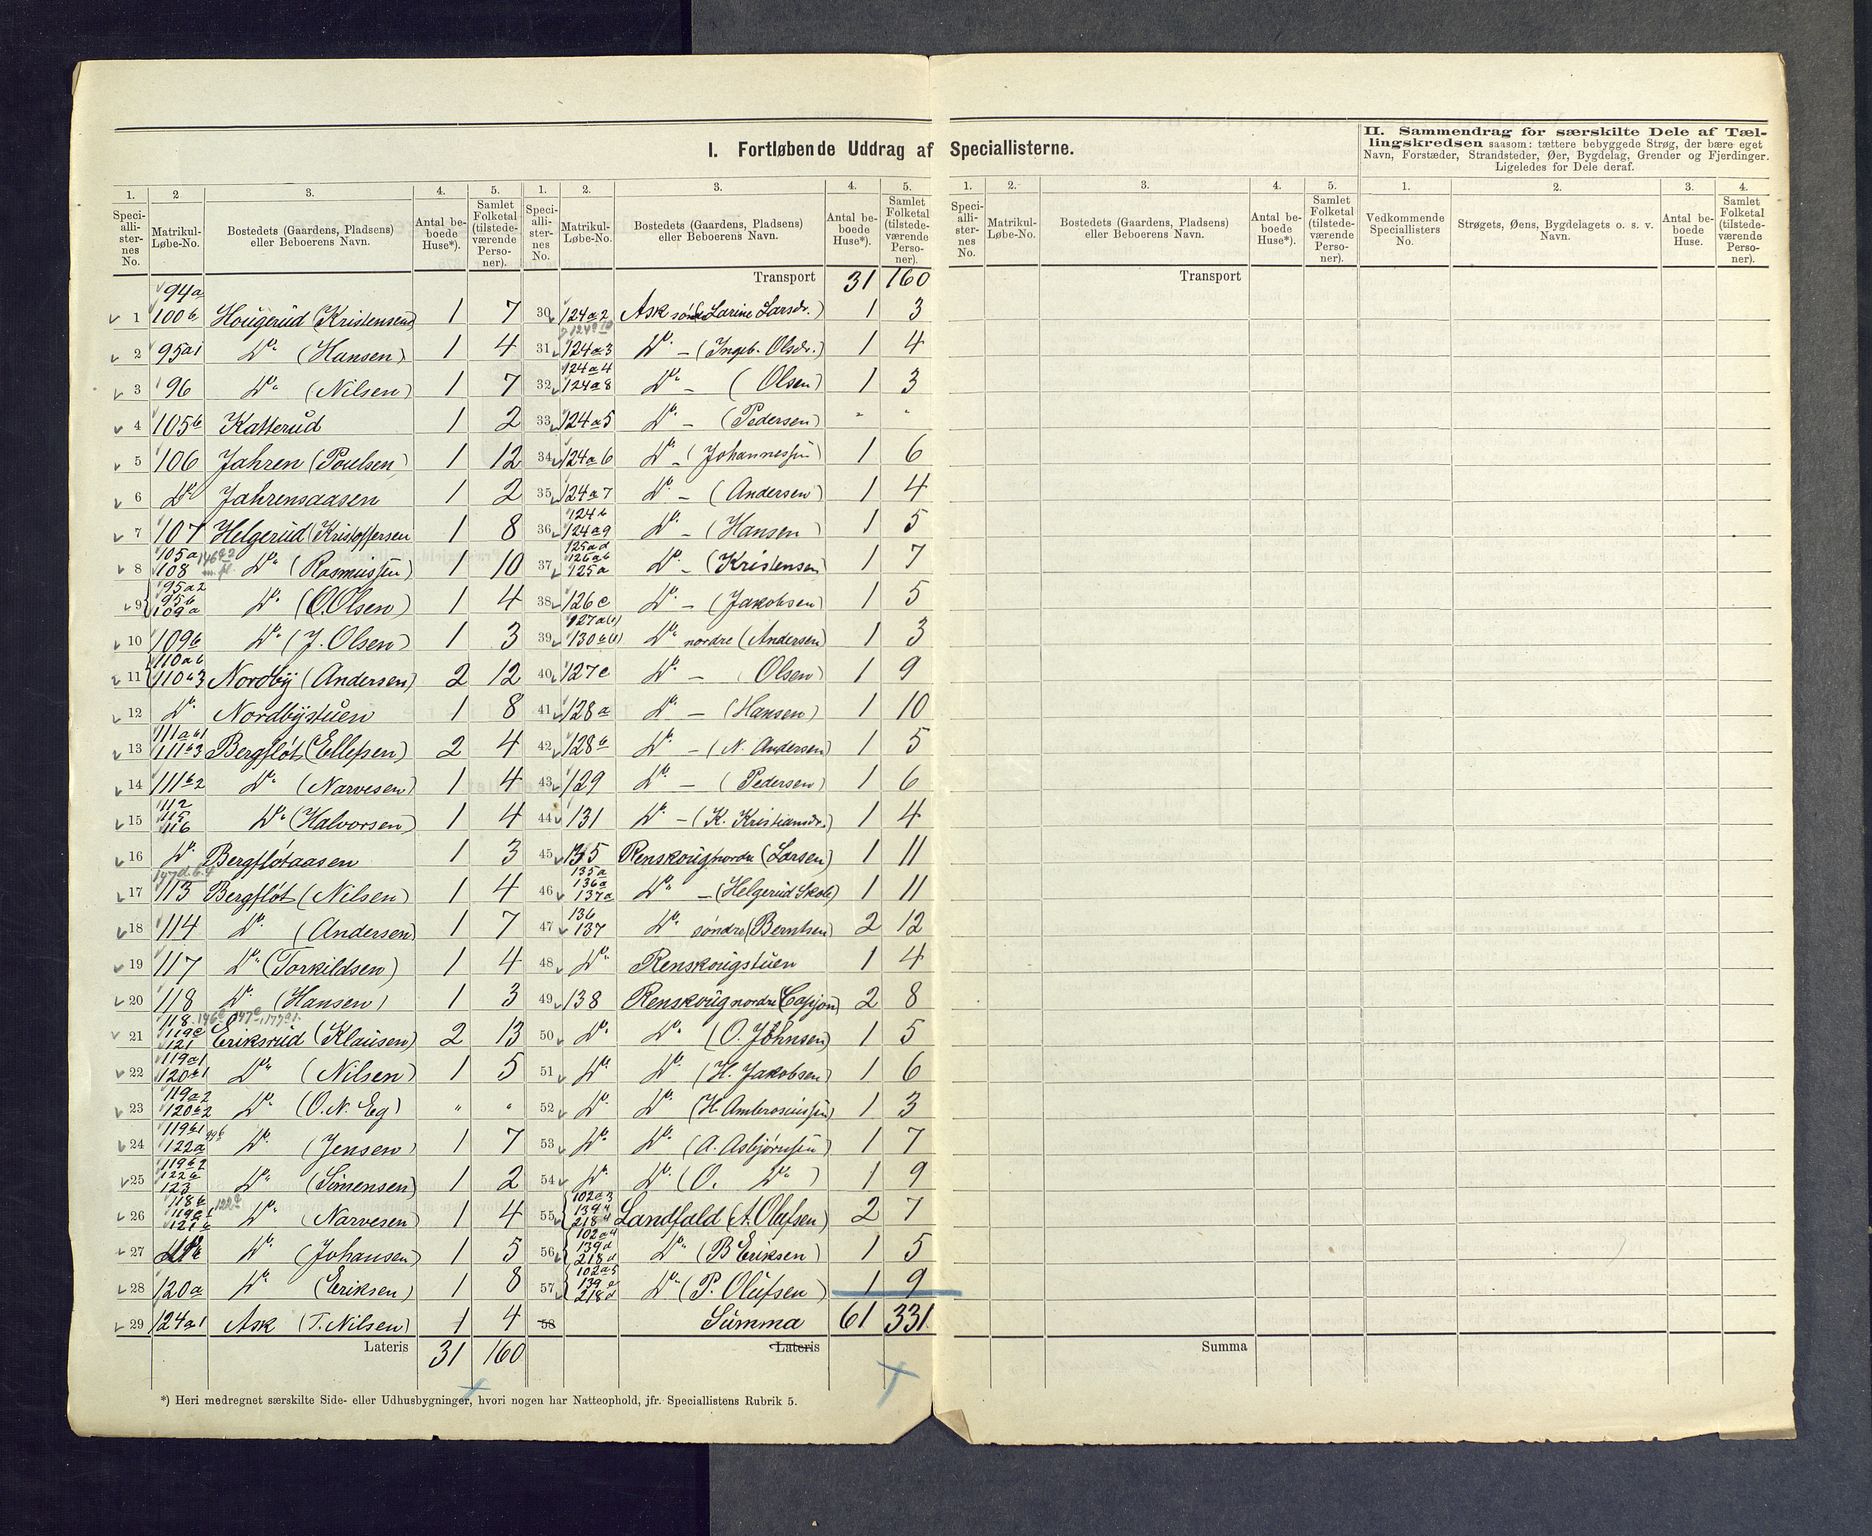 I. Fortløbende Uddrag af Speciallisterne.
II. Sammendrag for særskilte Dele af Tæl-
lingskredsen saasom: tættere bebyggede Strøg, der bære eget
Navn, Forstæder, Strandsteder, Øer, Bygdelag, Grender og Fjerdinger.
Ligeledes for Dele deraf.
1. 2 3. 4. 5. 1. 2. 3. 4. 5. 1. 2. 3. 4. 5. 1. 2. 3. 4.
Speciallisternes No. Matrikul-Løbe-No. Bostedets (Gaardens, Pladsens) eller Beboerens Navn. Antal beboede Huse*). Samlet Folketal (tilstedeværende Personer).
Speciallisternes No. Matrikul-Løbe-No. Bostedets (Gaardens, Pladsens) eller Beboerens Navn. Antal beboede Huse*). Samlet Folketal (tilstedeværende Personer).
Speciallisternes No. Matrikul-Løbe-No. Bostedets (Gaardens, Pladsens) eller Beboerens Navn. Antal beboede Huse*). Samlet Folketal (tilstedeværende Personer).
Vedkommende Speciallisters No. Strøgets, Øens, Bygdelagets o. s. v. Navn. Antal beboede Huse. Samlet Folketal (tilstedeværende Personer).
94a
1 100b Hougerud (Kristensen) 1 7
2 95a1 Do. (Hansen) 1 4
3 96 Do. (Nilsen) 1 7
4 105b Katterud 1 2
5 106 Jahren (Poulsen) 1 12
6 Do. Jahrensaasen 1 2
7 107 Helgerud (Kristoffersen 1 8
105a
8 108 Do. (Rasmussen) 1 10
95a2
95b
9 109a Do. (O. Olsen) 1 4
10 109b Do. (J. Olsen) 1 3
110ab
11 110a3 Nordby (Andersen) 2 12
12 Do. Nordbystuen 1 8
111ab1
13 111b3 Bergfløt (Ellefsen) 2 4
14 111b2 Do. (Narvesen) 1 4
112
115
15 116 Do. (Halvorsen) 1 4
16 Do. Bergfløtaasen 1 3
17 113 Bergfløt (Nilsen) 1 4
18 114 Do. (Andersen) 1 7
19 117 Do. (Torkildsen) 1 4
20 118 Do. (Hansen) 1 3
118
119c
21 121 Eriksrud (Klausen) 2 13
119a1
22 120b1 Do. (Nilsen) 1 5
119a2
23 120b2 Do. (O. N. Eg) " "
119b1
24 122a Do. (Jensen) 1 7
119b2
122b
25 123 Do. (Simensen) 1 2
118b
26 121b Do. (Narvesen) 1 4
27 Do. (Johansen) 1 5
28 120a Do. (Eriksen) 1 8
29 124a1 Ask (T. Nilsen) 1 4
Lateris 31 160
Transport 31 160
30 124a2 Ask søndre (Larine Larsdr.) 1 3
31 124a3 Do. — (Ingeb. Olsdr.) 1 4
124a4
32 124a8 Do. — (Olsen) 1 3
33 124a5 Do. — (Pedersen) " "
34 124a6 Do. — (Johannessen) 1 6
35 124a7 Do. — (Andersen) 1 4
124b
36 124a9 Do. — (Hansen) 1 5
125ad
126ab
37 125a Do. — (Kristensen) 1 7
38 126c Do. — (Jakobsen) 1 5
39 Do. nordre (Andersen) 1 3
40 127c Do. — (Olsen) 1 9
41 128a Do. — (Hansen) 1 10
42 128b Do. — (N. Andersen) 1 5
43 129 Do. — (Pedersen) 1 6
44 131 Do. — (K. Kristiansdr.) 1 4
45 135 Renskoug nordre (Larsen) 1 11
135a
136a
46 137a Do. — (Helgerud Skole) 1 11
136
47 137 Do. søndre (Berntsen) 2 12
48 Do. Renskougstuen 1 4
49 138 Renskoug nordre 2 8
50 Do. Do. (O. Johnsen) 1 5
51 Do. Do. (H. Jakobsen) 1 6
52 Do. Do. (H. Ambrosiussen) 1 3
53 Do. Do. (A. Asbjørnsen) 1 7
54 Do. Do. (O. Do.) 1 9
102a3
55 Landfald (A. Olufsen) 2 7
102a4
139d
56 218d Do. (B Eriksen) 1 5
102a5
57 218d Do. (P. Olufsen) 1 9
58 Summa 61 331.
Lateris
Transport
Summa
*) Heri medregnet særskilte Side- eller Udhusbygninger, hvori nogen har Natteophold, jfr. Speciallistens Rubrik 5.